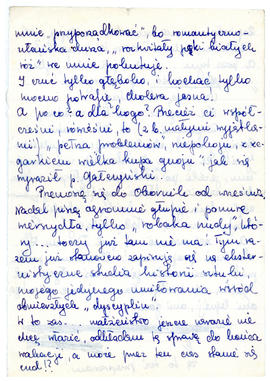 mnie „przyporządkować”, bo romantyczno-
ułańska dusza, „rozkwitały pęki białych
róż” we mnie pokutuje.
I czuć tylko głęboko, i kochać tylko
mocno potrafię, cholera jasna.
A po co? a dla kogo? Przecież ci współ-
cześni, rówieśni, to (z b. małymi wyjątka-
mi) „pełna problemów, niepokoju, z ze-
garkiem wielka kupa gnoju” jak się
wyraził p. Gałczyński.
Przenoszę się do Obornik od września,
nadal piszę ogromnie głupie i ponure
wierszydła, tylko „robaka nudy”, któ-
ry ... toczy już tam nie ma. Tym ra-
zem już stanowczo zapisuję się na ekster-
nistyczne studia historii sztuki,
mojego jedynego umiłowania wśród
obmierzłych „dyscyplin”.
W to zaś ... małżeństwo jeszcze wcale nie
chcę wierzyć, odkładam tę sprawę do końca
wakacji, a może przez ten czas stanie się
cud!?